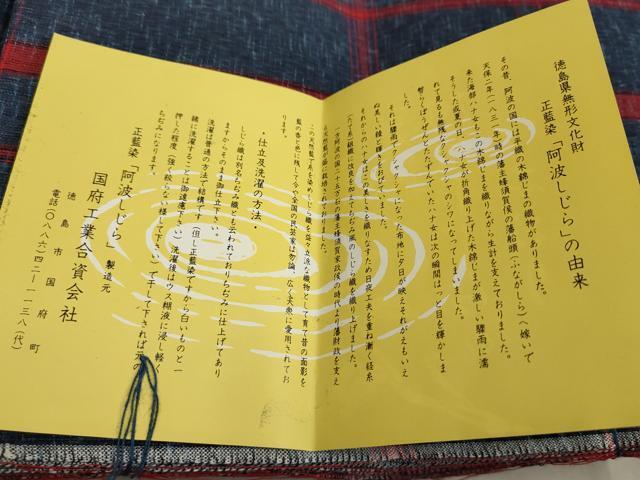 徳島県無形文化財
正藍染「阿波しじら」の由来
その昔、阿波の国には平織の木綿じまの織物がありました。
天保二年(一八三一年)時の藩主蜂須賀侯の藩船頭(ふながしら)へ嫁いで
来た海部ハナ女もこの木綿じまを織りながら生計を支えておりました。
そうした或夏の日、ハナ女が折角織り上げた木綿じまが激しい驟雨に濡
れて見るも無残なクシャクシャのシワになってしまいました。
暫らくぼうぜんとたたずんでいたハナ女は次の瞬間はっと目を輝かしま
した。
それは驟雨でクシャクシャになった布地に夕日が映えそれがえもいえ
ぬ美しい綾と輝きをおびていました。
それからのハナ女はその美しさを織りなすため日夜工夫を重ね漸く経糸
(たて糸)組織に改良を加えてちぢみ風のしじら織を織り上げました。
一方阿波の国二十五万石の藩主蜂須賀家政侯の時代より藩財政を支え
る天然藍が盛に栽培されておりました。
この天然藍で糸を染めしじら織を益々立派な織物として育て昔の面影を
藍の香と色に残して今や全国の民芸家は勿論、広く大衆に愛用されてお
ります。
・仕立及洗濯の方法・
しじら織は別名ちぢみ織とも云われておりちぢみに仕上げてあり
ますからそのまま御仕立下さい。
洗濯は普通の方法で結構です。(但し正藍染ですから白いものと一
緒に洗濯することは御遠慮下さい)洗濯後はウス糊液に浸し軽く
押した程度(強く絞らない様にして下さい)で干して下されば元の
ちぢみになります。
正藍染「阿波しじら」製造元
国府工業合資会社
徳島市国府町
電話〇八八六)四二-一一三八(代)